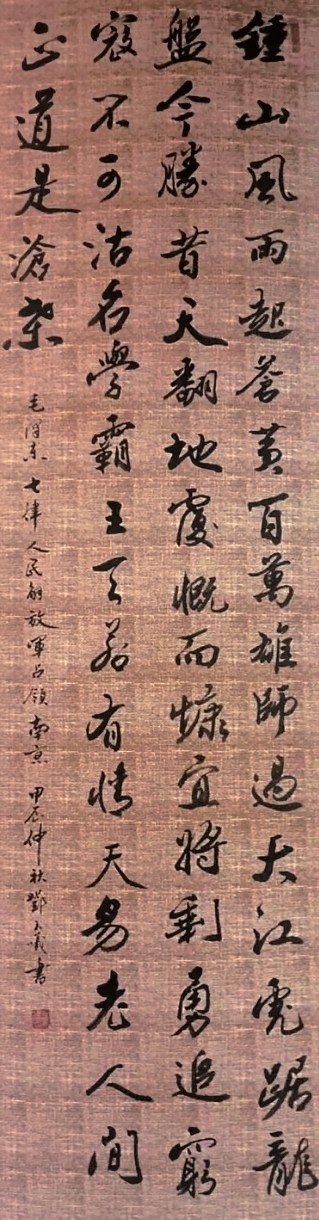 鍾山風雨起蒼黃百萬雄師過大江虎踞龍
盤今勝昔天翻地覆慨而慷宜將剩勇追窮
寇不可沽名學霸王天若有情天易老人間
正道是滄桑
毛澤東七律人民解放軍占領南京 甲辰仲秋鄧義書